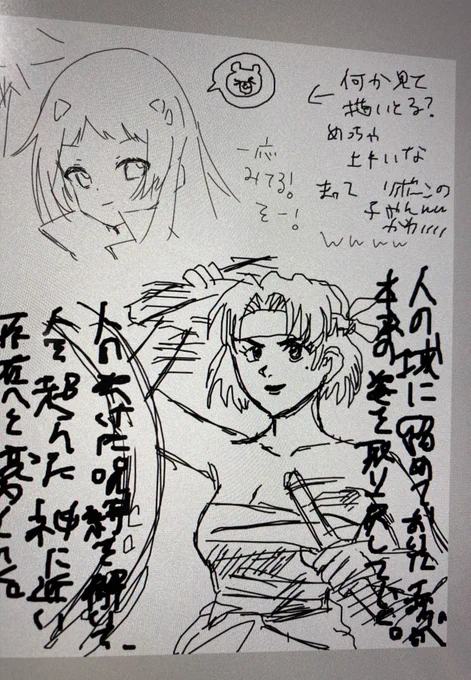 何か見て
描いとる?
めっちゃ
上手いな
まって リボーンの
子やんww
かわいい
wwww
一応
みてる!
そー!
人の域に留めておいたエヴァが
本来の姿を取り戻していく。
人のかけた呪縛を解いて、
人を超えた神に近い
存在へと